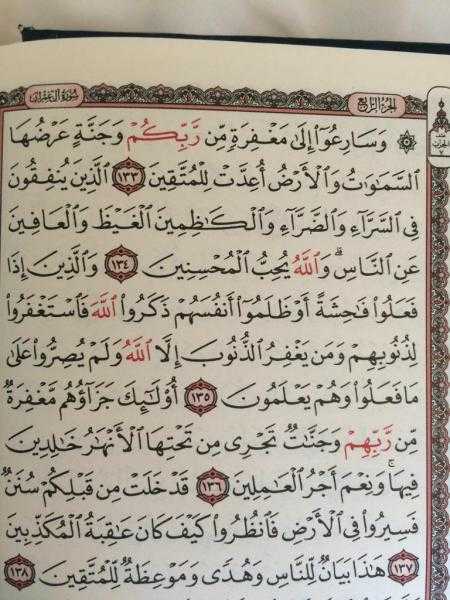 سورة آل عمران
الجزء الرابع
۞ وَسَارِعُوٓا۟ إِلَىٰ مَغْفِرَةٍ مِّن رَّبِّكُمْ وَجَنَّةٍ عَرْضُهَا
السَّمَـٰوَٰتُ وَالْأَرْضُ أُعِدَّتْ لِلْمُتَّقِينَ ١٣٣ الَّذِينَ يُنفِقُونَ
فِى السَّرَّآءِ وَالضَّرَّآءِ وَالْكَـٰظِمِينَ الْغَيْظَ وَالْعَافِينَ
عَنِ النَّاسِ ۗ وَاللَّهُ يُحِبُّ الْمُحْسِنِينَ ١٣٤ وَالَّذِينَ إِذَا
فَعَلُوا۟ فَـٰحِشَةً أَوْ ظَلَمُوٓا۟ أَنفُسَهُمْ ذَكَرُوا۟ اللَّهَ فَاسْتَغْفَرُوا۟
لِذُنُوبِهِمْ وَمَن يَغْفِرُ الذُّنُوبَ إِلَّا اللَّهُ وَلَمْ يُصِرُّوا۟ عَلَىٰ
مَا فَعَلُوا۟ وَهُمْ يَعْلَمُونَ ١٣٥ أُو۟لَـٰٓئِكَ جَزَآؤُهُم مَّغْفِرَةٌ
مِّن رَّبِّهِمْ وَجَنَّـٰتٌ تَجْرِى مِن تَحْتِهَا الْأَنْهَـٰرُ خَـٰلِدِينَ
فِيهَا ۚ وَنِعْمَ أَجْرُ الْعَـٰمِلِينَ ١٣٦ قَدْ خَلَتْ مِن قَبْلِكُمْ سُنَنٌ
فَسِيرُوا۟ فِى الْأَرْضِ فَانظُرُوا۟ كَيْفَ كَانَ عَـٰقِبَةُ الْمُكَذِّبِينَ
١٣٧ هَـٰذَا بَيَانٌ لِّلنَّاسِ وَهُدًى وَمَوْعِظَةٌ لِّلْمُتَّقِينَ ١٣٨